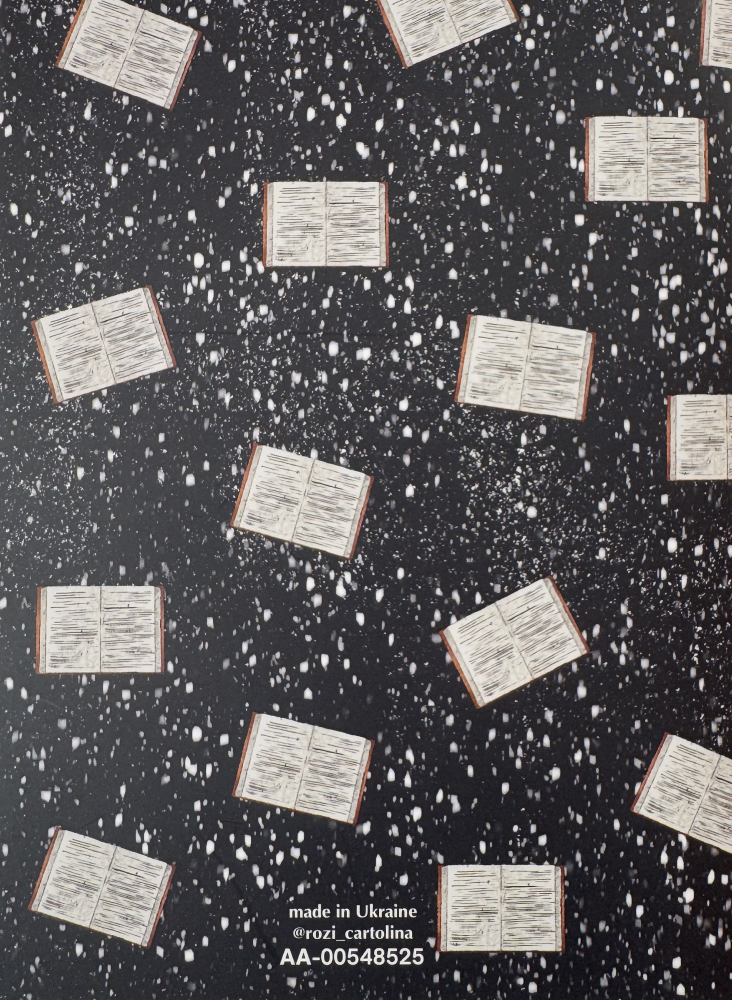 made in Ukraine
@rozi_cartolina
AA-00548525